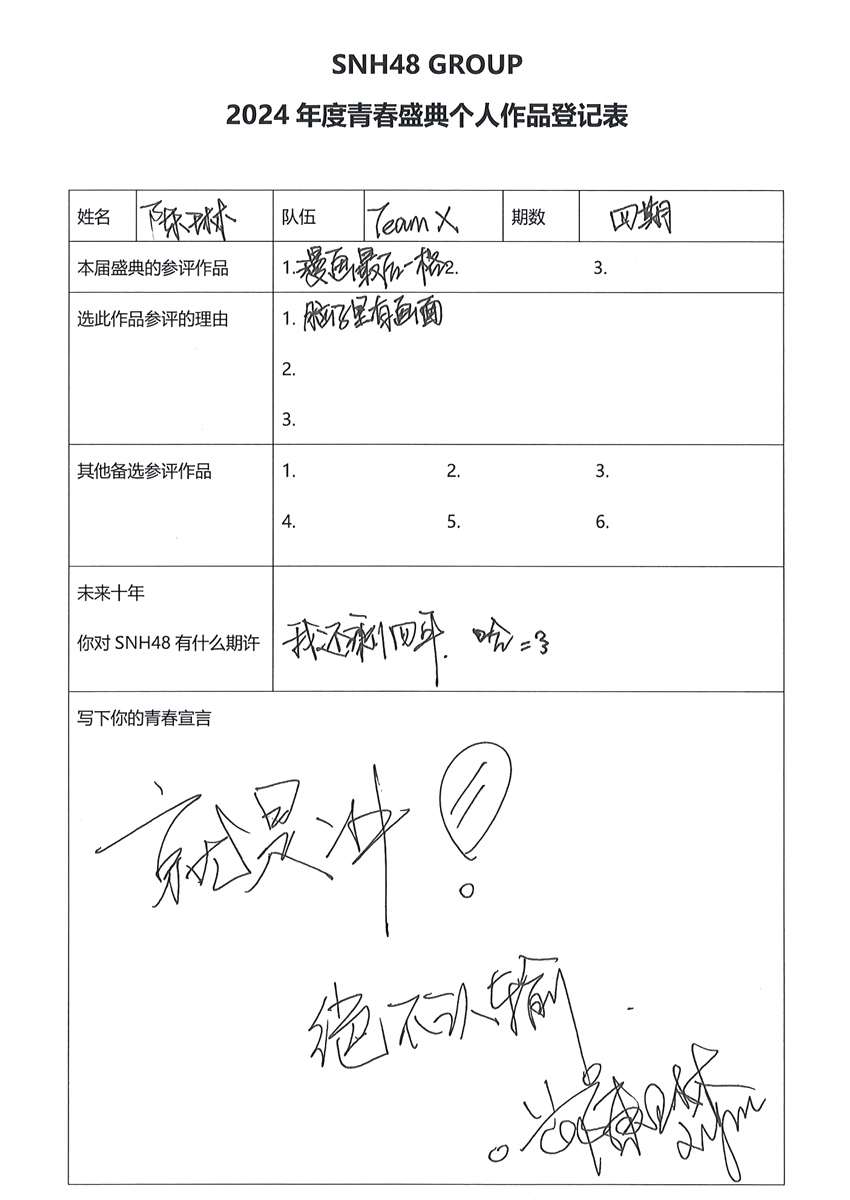 SNH48 GROUP
2024 年度青春盛典个人作品登记表
姓名 陈琳 队伍 Team X 期数 四期
本届盛典的参评作品 1.漫画最后一格 2. 3.
选此作品参评的理由 1. 脑子里有画面
2.
3.
其他备选参评作品 1. 2. 3.
4. 5. 6.
未来十年
你对 SNH48 有什么期许 我还剩四年. 哈=3
写下你的青春宣言
就是冲!
绝不认输